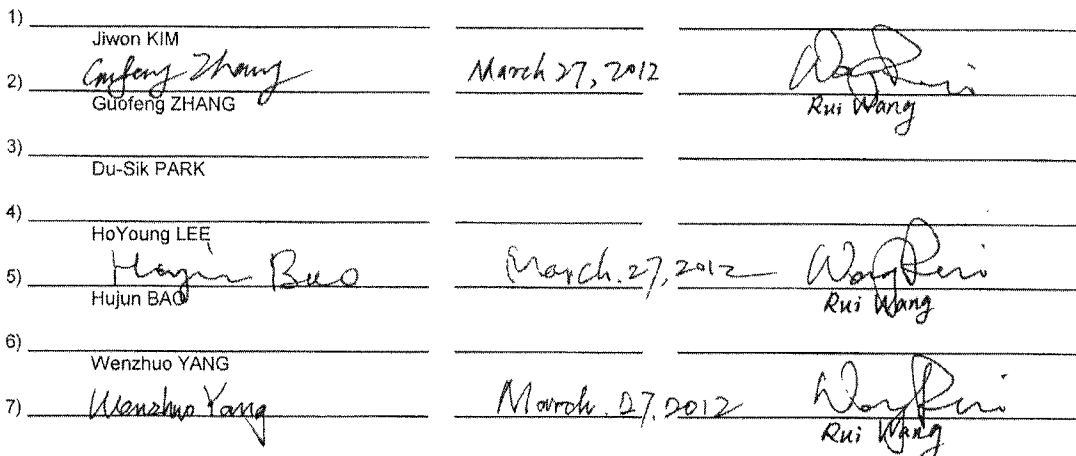 1)
Jiwon KIM
2) Guofeng Zhang March 27, 2012
Guofeng ZHANG Rui Wang
3)
Du-Sik PARK
4)
HoYoung LEE
5) Hujun Bao March. 27, 2012
Hujun BAO Rui Wang
6)
Wenzhuo YANG
7) Wenzhuo Yang March. 27, 2012
Rui Wang